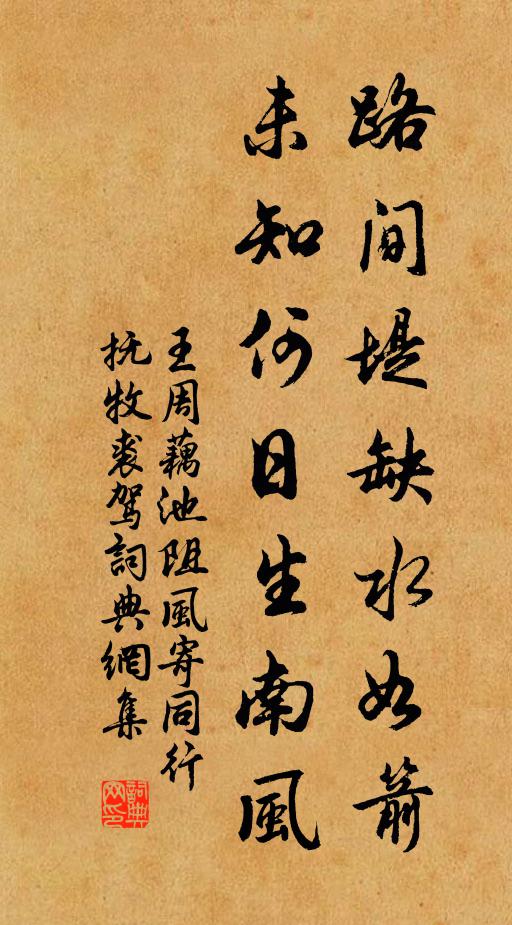 路间堤缺水如箭
未知何日生南風
王周藕池阻風寄同行
抚牧裘驾詞典網集
詞典
网印